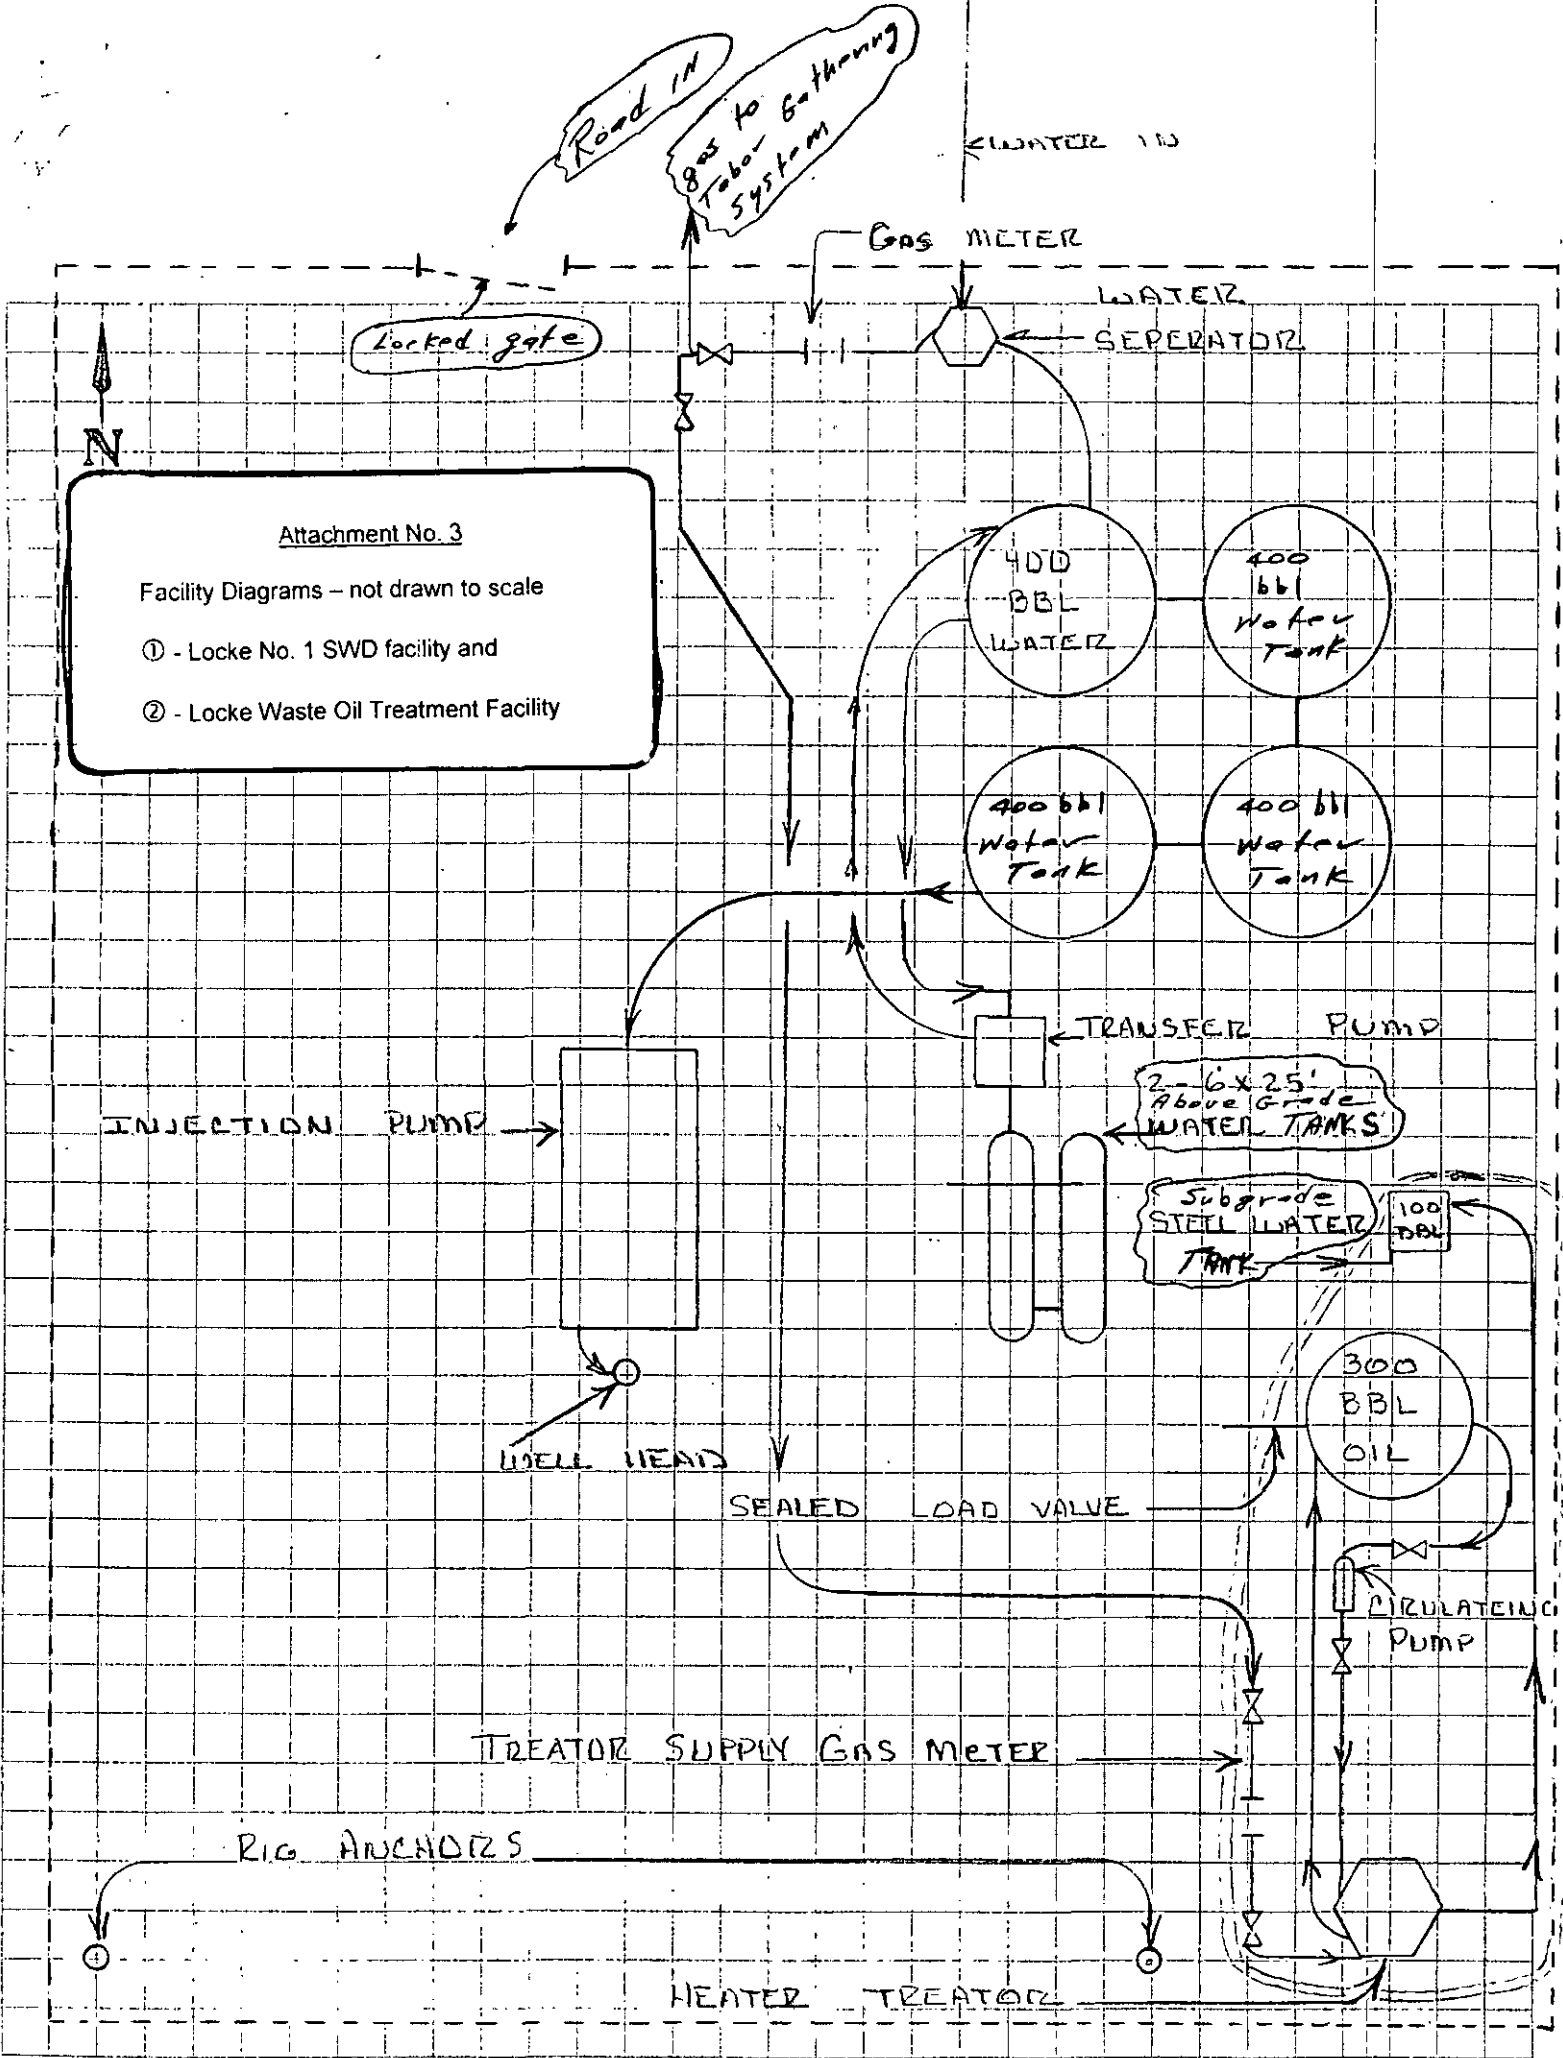 Road IN
gas to
Tabor Gathering
System
WATER IN
GAS METER
WATER
SEPERATOR
Locked gate
N
Attachment No. 3
Facility Diagrams – not drawn to scale
① - Locke No. 1 SWD facility and
② - Locke Waste Oil Treatment Facility
400
BBL
WATER
400
bbl
Water
Tank
400 bbl
Water
Tank
400 bbl
Water
Tank
TRANSFER PUMP
2 - 6 x 25'
Above Grade
WATER TANKS
INJECTION PUMP
Subgrade
STEEL WATER
TANK
100
BBL
300
BBL
OIL
WELL HEAD
SEALED LOAD VALVE
CIRULATEING
PUMP
TREATOR SUPPLY GAS METER
RIG ANCHORS
HEATER TREATOR